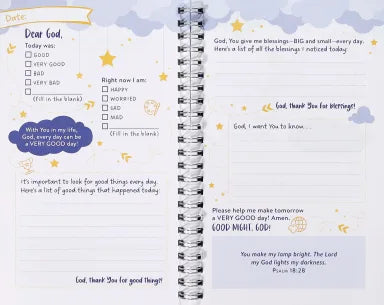 Date:
Dear God,
Today was:
GOOD
VERY GOOD
BAD
VERY BAD
(fill in the blank)
Right now I am:
HAPPY
WORRIED
SAD
MAD
(fill in the blank)
With You in my life,
God, every day can be
a VERY GOOD day!
It's important to look for good things every day.
Here's a list of good things that happened today:
God, thank You for good things!
God, You give me blessings—BIG and small—every day.
Here's a list of all the blessings I noticed today:
God, thank You for blessings!
God, I want You to know...
Please help me make tomorrow
a VERY GOOD day! Amen.
GOOD NIGHT, GOD!
You make my lamp bright. The Lord
my God lights my darkness.
PSALM 18:28